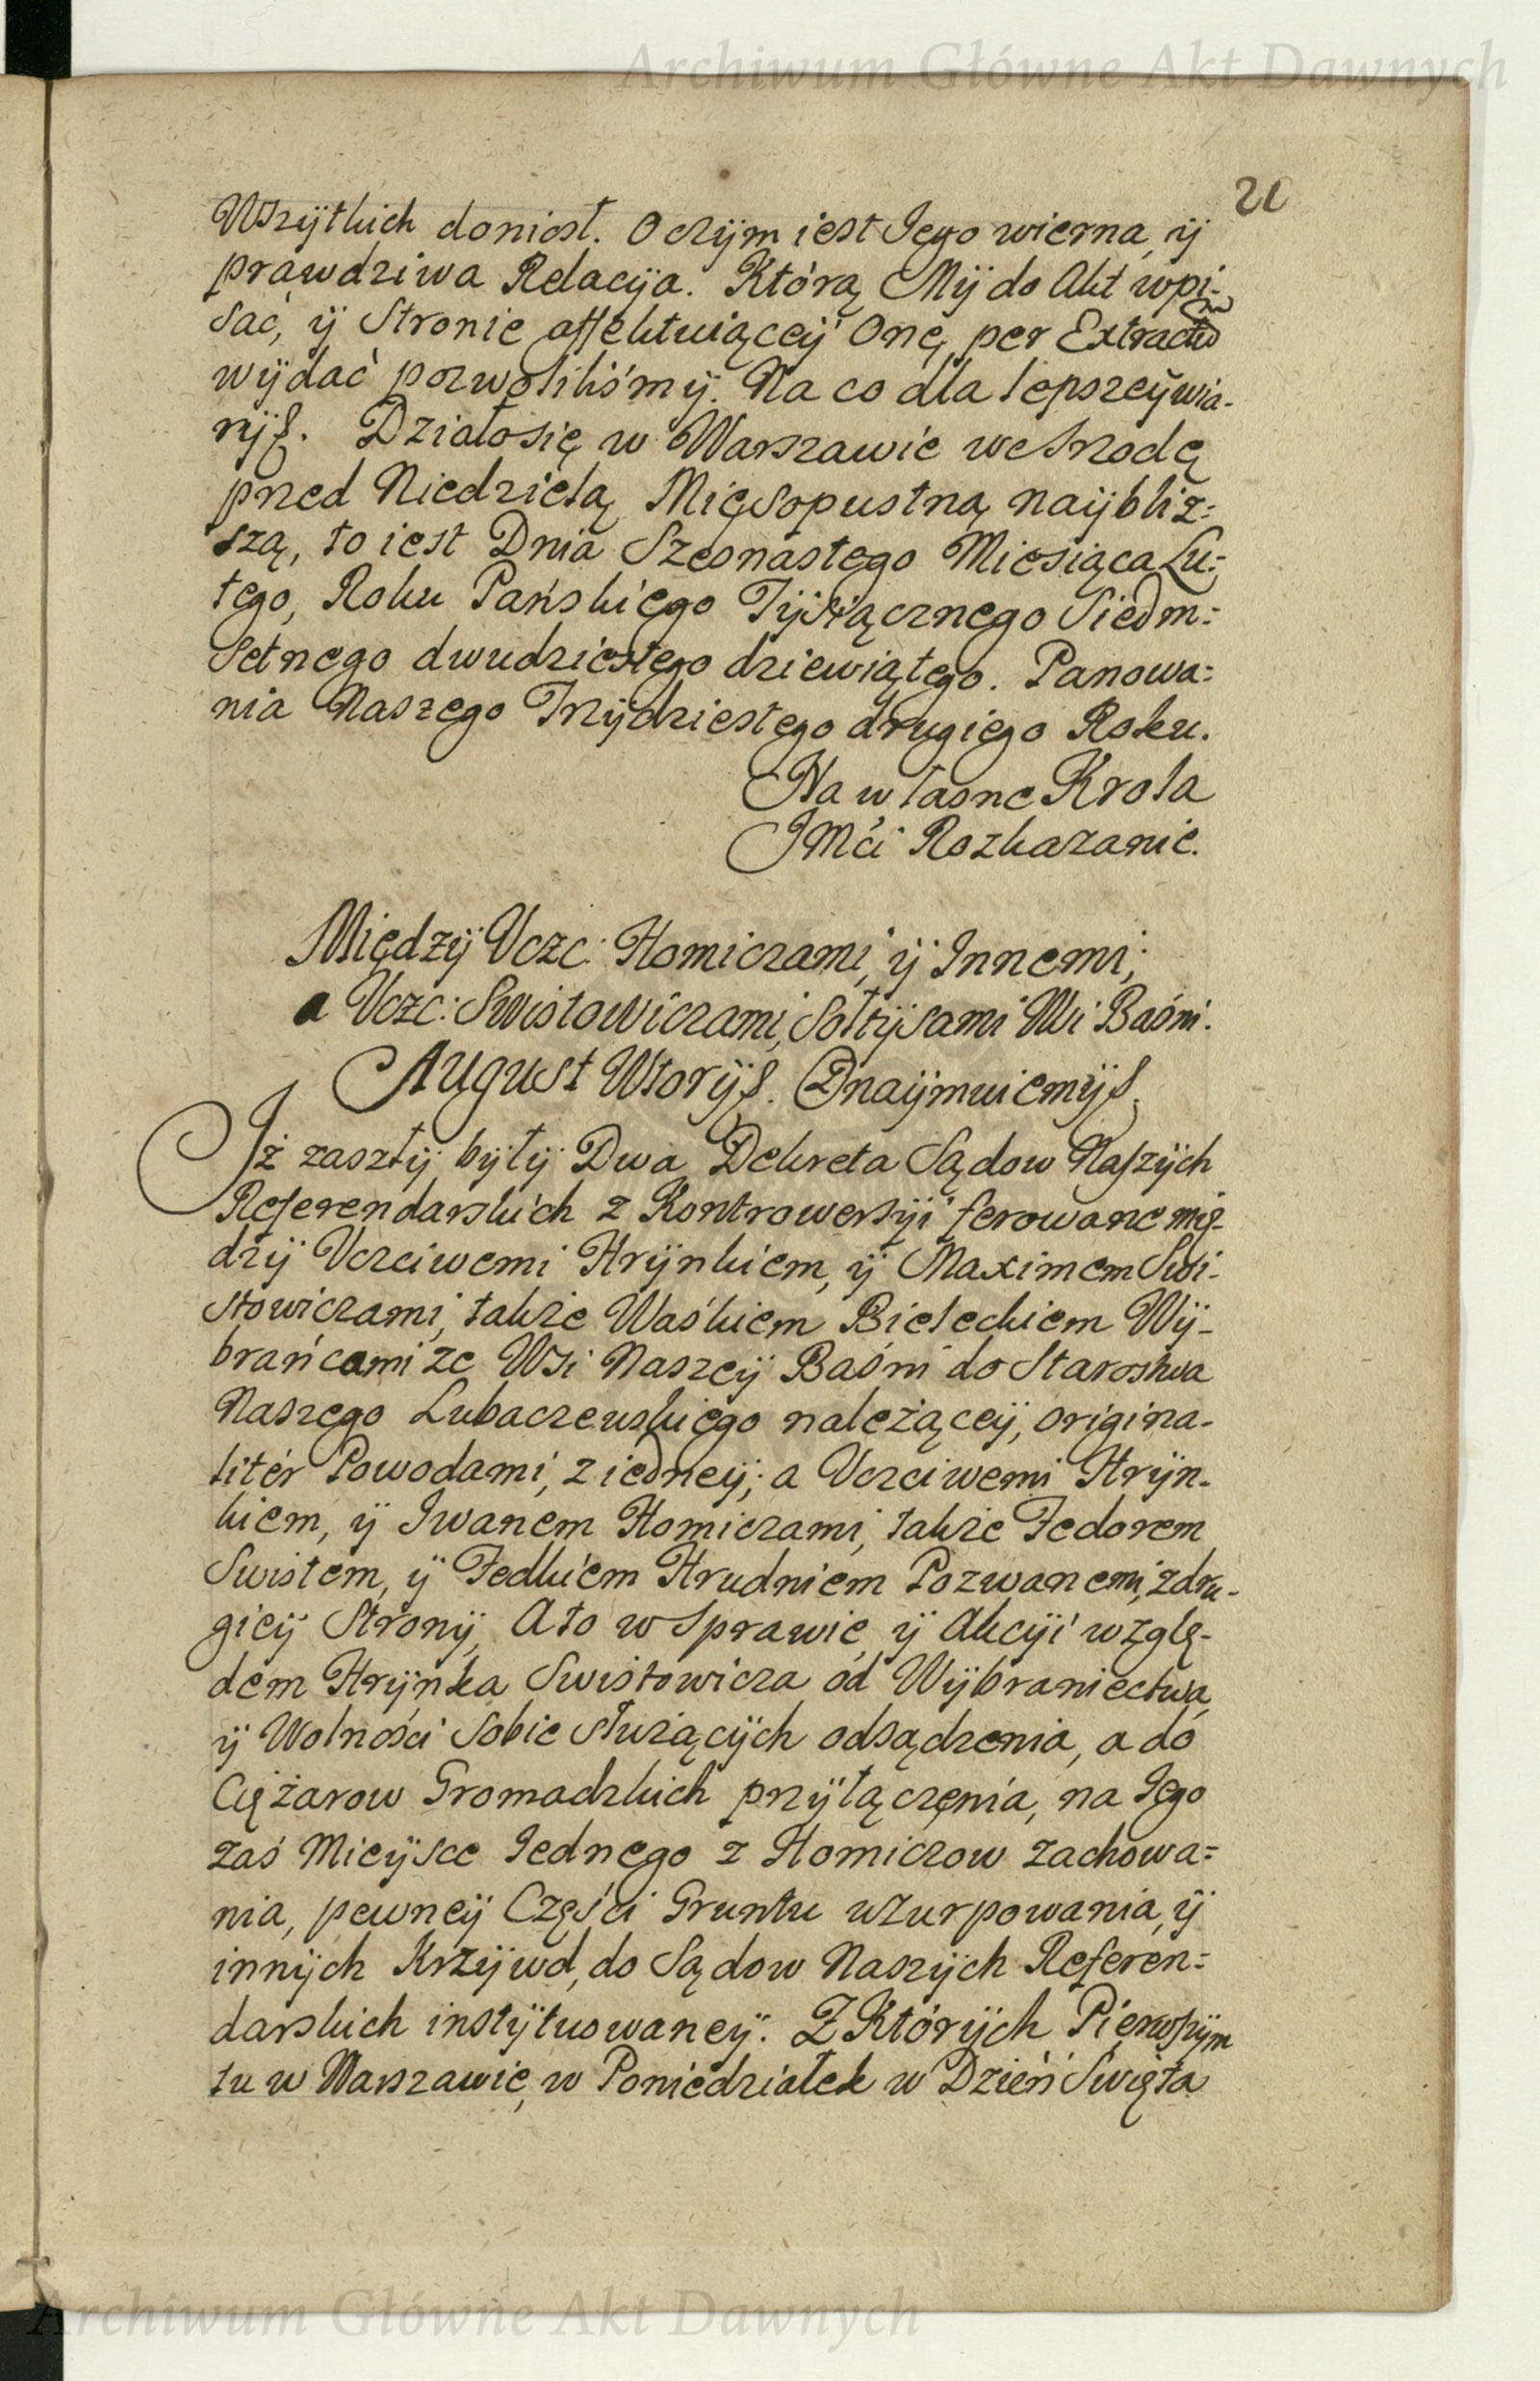 Archiwum Główne Akt Dawnych
21
Wszÿtkich doniosł. O czÿm iest Iego wierna, ÿ
prawdziwa Relacÿa. Którą Mÿ do Akt wpi-
sać, ÿ Stronie affektuiąceÿ Onę per Extractum
wÿdać pozwoliliśmÿ. Na co dla lepszeÿ wia-
rÿ &. Działo się w Warszawie we Srzodę
przed Niedzielą Mięsopustną naÿbliż:
szą, to iest Dnia Szesnastego Miesiąca Lu:
tego, Roku Pańskiego Tÿsiącznego Siedm:
setnego dwudziestego dziewiątego. Panowa:
nia Naszego Trzÿdziestego drugiego Roku.
Na własne Krola
JMći Rozkazanie.
Międzÿ Uczc: Homiczami, ÿ Innemi;
a Uczc: Swistowiczami, Sołtÿsami Wsi Baśni.
August Wtorÿ &. Oznaÿmuiemÿ &.
Iż zaszłÿ bÿłÿ Dwa Dekreta Sądow Naszÿch
Referendarskich z Kontrowersÿi ferowane mię-
dzÿ Uczciwemi Hrÿnkiem, ÿ Maximem Swi-
stowiczami, także Waśkiem Bieleckiem Wÿ-
brańcami ze Wsi Naszeÿ Baśni do Starostwa
Naszego Lubaczewskiego należąceÿ, origina-
litér Powodami, z iedneÿ; a Uczciwemi Hrÿn-
kiem, ÿ Iwanem Homiczami, także Fedorem
Swistem, ÿ Fedkiem Hrudniem Pozwanemi, z dru-
gieÿ Stronÿ, A to w Sprawie, ÿ Akcÿi wzglę-
dem Hrÿnka Swistowicza od Wÿbraniectwa,
ÿ Wolności Sobie służącÿch odsądzenia, a do
Ciężarow Gromadzkich przÿłączenia, na Iego
zaś Mieÿsce Iednego z Homiczow zachowa=
nia, pewneÿ Części Gruntu uzurpowania, ÿ
innÿch Krzÿwd, do Sądow Naszÿch Referen=
darskich instÿtuowaneÿ. Z Którÿch Pierwszÿm
tu w Warszawie, w Poniedziałek w Dzień Swięta
Archiwum Główne Akt Dawnych